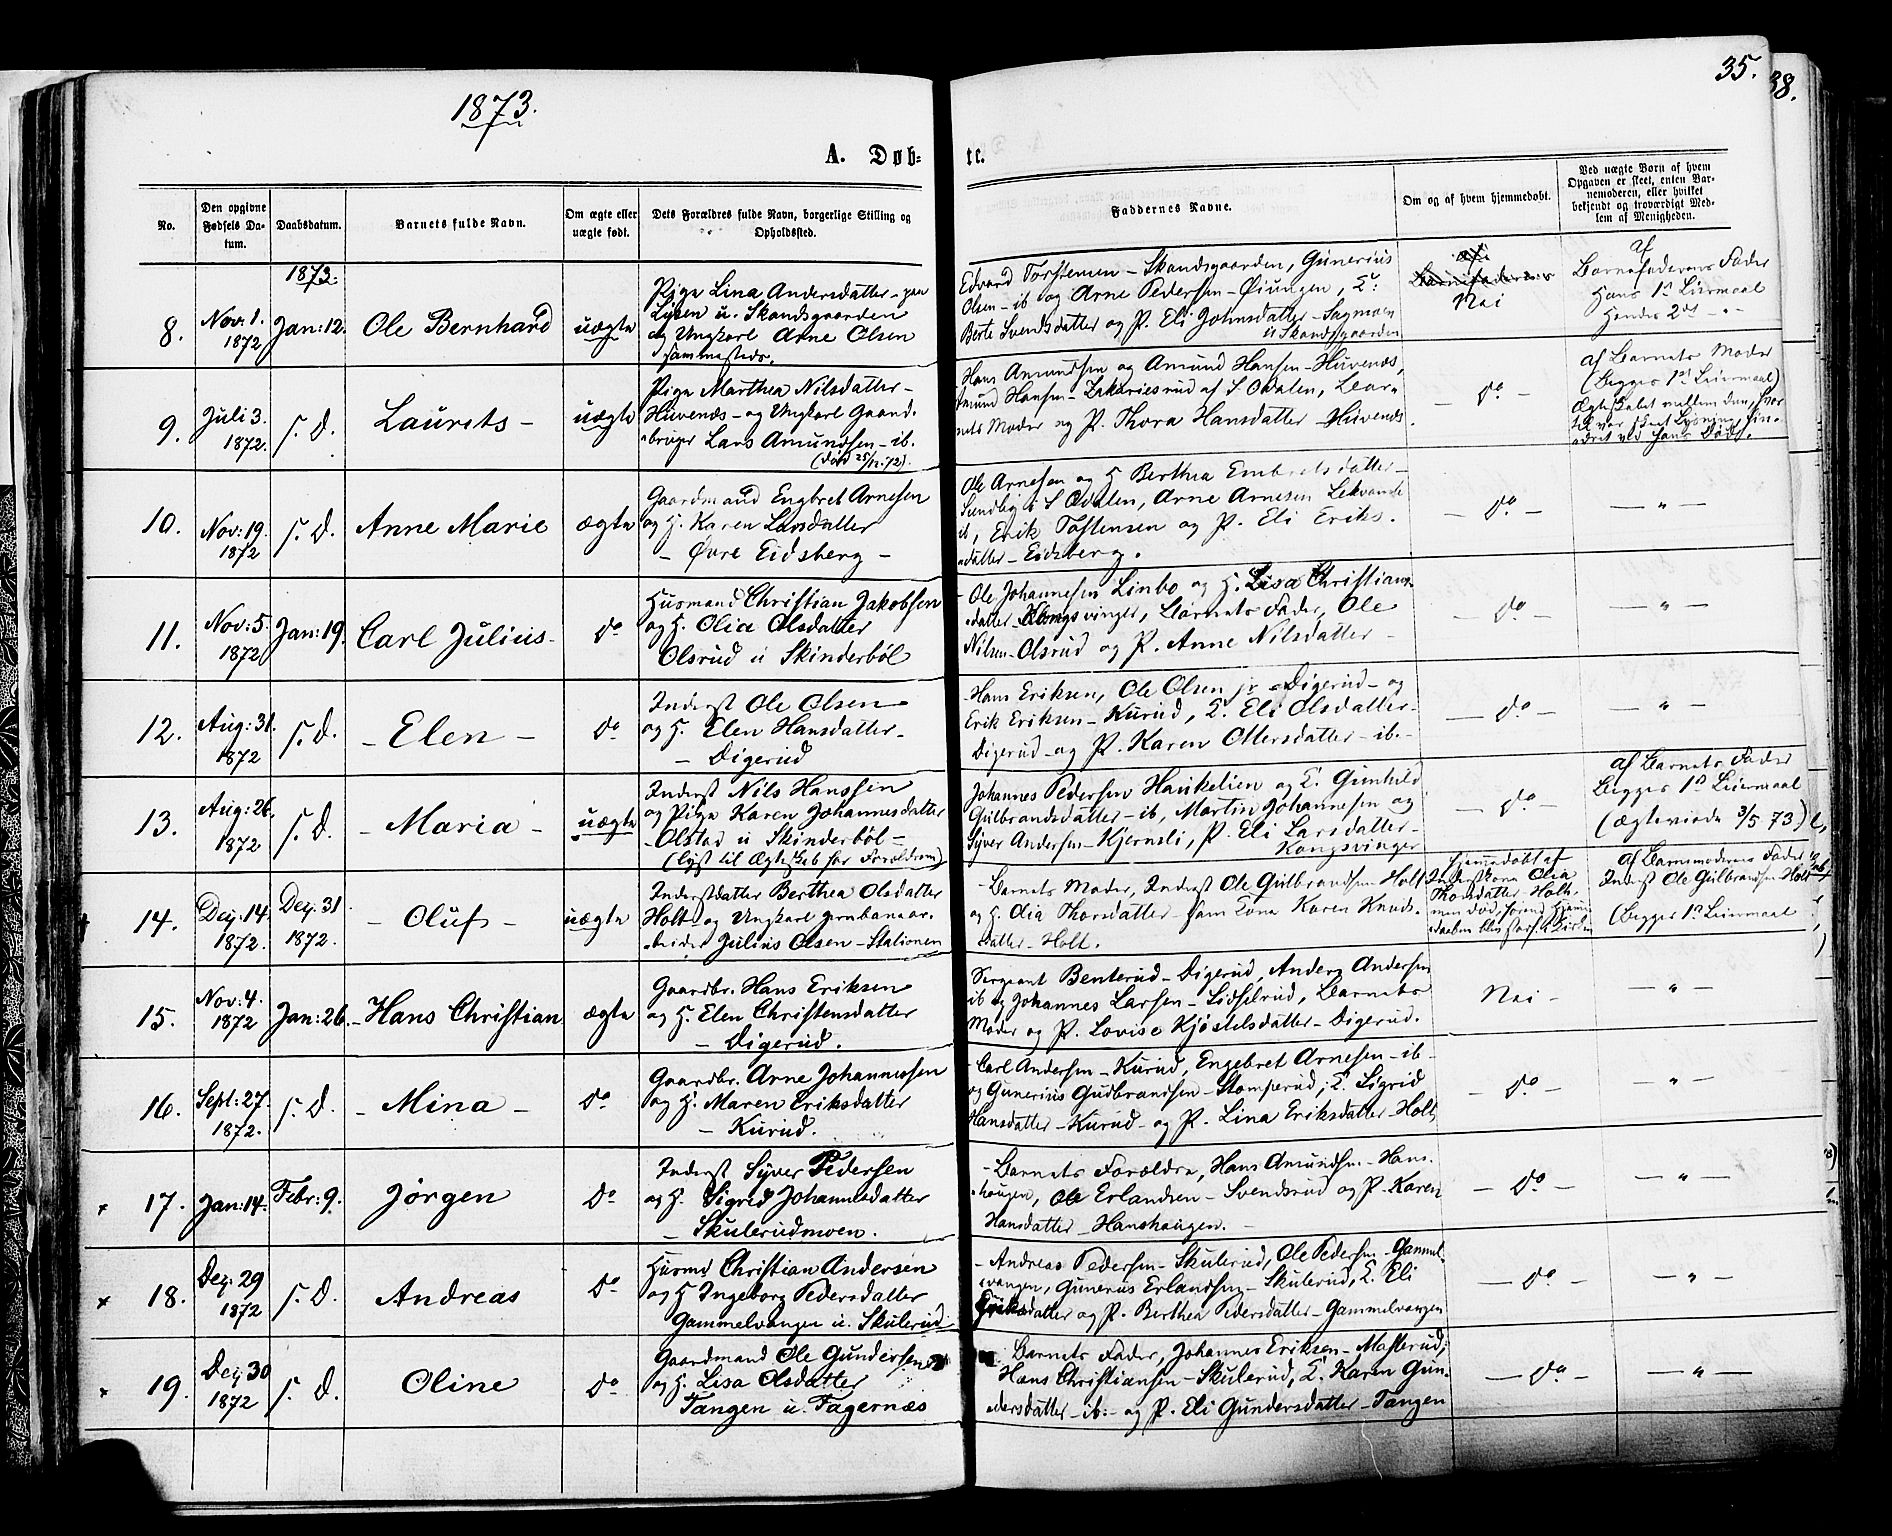 1873.
35.
38.
A. Døb-
te.
No.
Den opgivne Fødsels Datum.
Daabsdatum.
Barnets fulde Navn.
Om ægte eller uægte født.
Dets Forældres fulde Navn, borgerlige Stilling og Opholdssted.
Faddernes Navne.
Om og af hvem hjemmedøbt.
Ved uægte Børn af hvem Opgaven er skeet, enten Barnemoderen, eller hvilket bekjendt og troværdigt Medlem af Menigheden.
1873.
8.
Nov: 1. 1872
Jan: 12.
Ole Bernhard
uægte
Pige Lina Andersdatter - paa
Lysen u. Skandsgaarden
og Ungkarl Arne Olsen
sammesteds.
Edvard Torstensen - Skandsgaarden, Gunerius
Olsen - ib og Arne Pedersen - Øiungen, E:
Berte Svendsdatter og P. Eli Johnsdatter - Sagmoen
u Skandsgaarden
Nei
af
Barnefaderens Fader
Hans 1ste Leiermaal
Hendes 2det - " -
9.
Juli 3. 1872.
s. d.
Laurits -
uægte
Pige Marthea Nilsdatter -
Huvenæs - og Ungkarl Gaard-
bruger Lars Amundsen - ib.
(død 25/12 72).
Hans Amundsen og Amund Hansen - Huvenæs,
Amund Hansen - Zakariesrud af S. Odalen, Bar-
nets Moder og P. Thora Hansdatter - Huvenæs.
- do -
af Barnets Moder
(Begges 1ste Leiermaal)
Ægteskabet mellem dem, hvor
til var skeet Lysning, hin-
dret ved hans Død.
10.
Nov: 19. 1872
s. d.
Anne Marie
ægte
Gaardmand Engbret Arnesen
og H. Karen Larsdatter
- Øvre Eidsberg -
Ole Arnesen og H Berthea Embretsdatter -
Sundby i S Odalen, Arne Arnesen Lekvande
ib, Erik Tostensen og P. Eli Eriks-
datter - Eidsberg.
- do -
- " -
11.
Nov: 5 1872
Jan: 19.
Carl Julius -
do
Husmand Christian Jakobsen
og H. Olia Olsdatter
Olsrud u Skinderböl
- Ole Johannesen Linbo og H. Lisa Christians-
datter - Kongsvinger, Barnets Fader, Ole
Nilsen - Olsrud og P. Anne Nilsdatter -
- do -
- " -
12.
Aug: 31. 1872
s. d.
- Elen -
do
Inderst Ole Olsen
og H. Elen Hansdatter -
- Digerud
- Hans Eriksen, Ole Olsen jr - Digerud - og
Erik Eriksen - Kurud, E. Eli Olsdatter -
Digerud - og P. Karen Ottersdatter - ib. -
- do -
- " -
13.
Aug: 26. 1872
s. d.
- Maria -
uægte
Inderst Nils Hanssen
og Pige Karen Johannesdatter
Olstad u Skinderböl -
(lyst til Ægteskab for Forældrene)
Johannes Pedersen Haukelien og E. Gunhild
Gulbrandsdatter - ib, Martin Johannesen og
Syver Andersen - Kjernsli, P. Eli Larsdatter -
Kongsvinger
- do -
af Barnets Fader
Begges 1ste Leiermaal
(Ægteviede 3/5 73)
14.
Dez. 14. 1872.
Dez. 31 1872.
- Oluf -
uægte
Inderstdatter Berthea Olsdatter
Holt - og Ungkarl Jernbanear-
beider Julius Olsen - Stationen
- Barnets Moder, Inderst Ole Gulbrandsen Holt
og H. Olia Thorsdatter - sam Kone Karen Knuds-
datter - Holt.
Hjemmedøbt af
Inderstkone Olia
Thorsdatter Holt
men død, forend Hjemme-
daaben blev stadf. i Kirken
af Barnemoderens Fader
Inderst Ole Gulbrandsen Holt
(Begges 1ste Leiermaal
15.
Nov: 4. 1872
Jan: 26.
- Hans Christian
ægte
Gaardbr. Hans Eriksen
og H. Elen Christensdatter
- Digerud.
Sergeant Benterud - Digerud, Anders Andersen
ib og Johannes Larsen - Lidselrud, Barnets
Moder og P. Lovise Kjöstelsdatter - Digerud.
Nei -
- " -
16.
Sept: 27. 1872.
s. d.
- Mina -
do
Gaardbr. Arne Johannessen
og H. Maren Eriksdatter
- Kurud.
- Carl Andersen - Kurud, Engebret Arnesen - ib -
og Gunerius Gudbrandsen - Stomperud, E. Sigrid
Hansdatter - Kurud - og P. Lina Eriksdatter - Holt
- do -
- " -
17.
Jan: 14.
Febr: 9.
Jørgen
do
Inderst Syver Pedersen
og H. Sigrid Johannesdatter
- Skulerudmoen.
- Barnets Forældre, Hans Amundsen - Hans-
haugen, Ole Erlandsen - Svendsrud og P. Karen
Hansdatter - Hanshaugen. -
- do -
- " -
18.
Dez. 29 1872
s. d.
Andreas
do
Husmd Christian Andersen
og H Ingeborg Pedersdatter
Gammelvangen u. Skulerud
- Andreas Pedersen - Skulerud, Ole Pedersen - Gammel-
vangen, Gunerius Erlandsen - Skulerud, E. Eli
Eriksdatter og P. Berthea Pedersdatter - Gammelvangen
- do -
- " -
19.
Dez 30 1872
s. d.
Oline
do
Gaardmand Ole Gundersen
og H. Lisa Olsdatter
Tangen u. Fagernæs
Barnets Fader, Johannes Eriksen - Masterud,
Hans Christiansen - Skulerud, E. Karen Gun-
dersdatter - ib: - og P. Eli Gundersdatter - Tangen
- do -
- " -